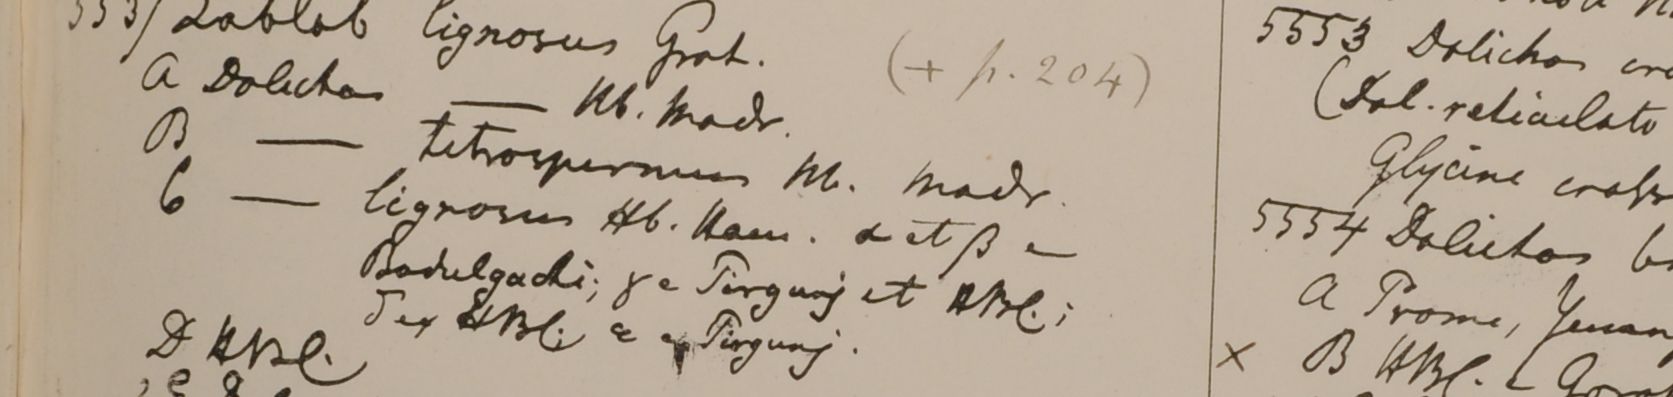 Lablab lignosus Grah.
(+ p. 204)
A Dolichos —— Hb. Madr.
B —— tetraspermus Hb. Madr.
C —— lignosus Hb. Ham. α et β e
Badulgachi; γ e Tirgunj et HBC;
δ ex HBC. e Tirgunj.
D HBC.
5553 Dolichos
(Dol. reticulato
Glycine
5554 Dolichos
A Prome,
× B HBC.